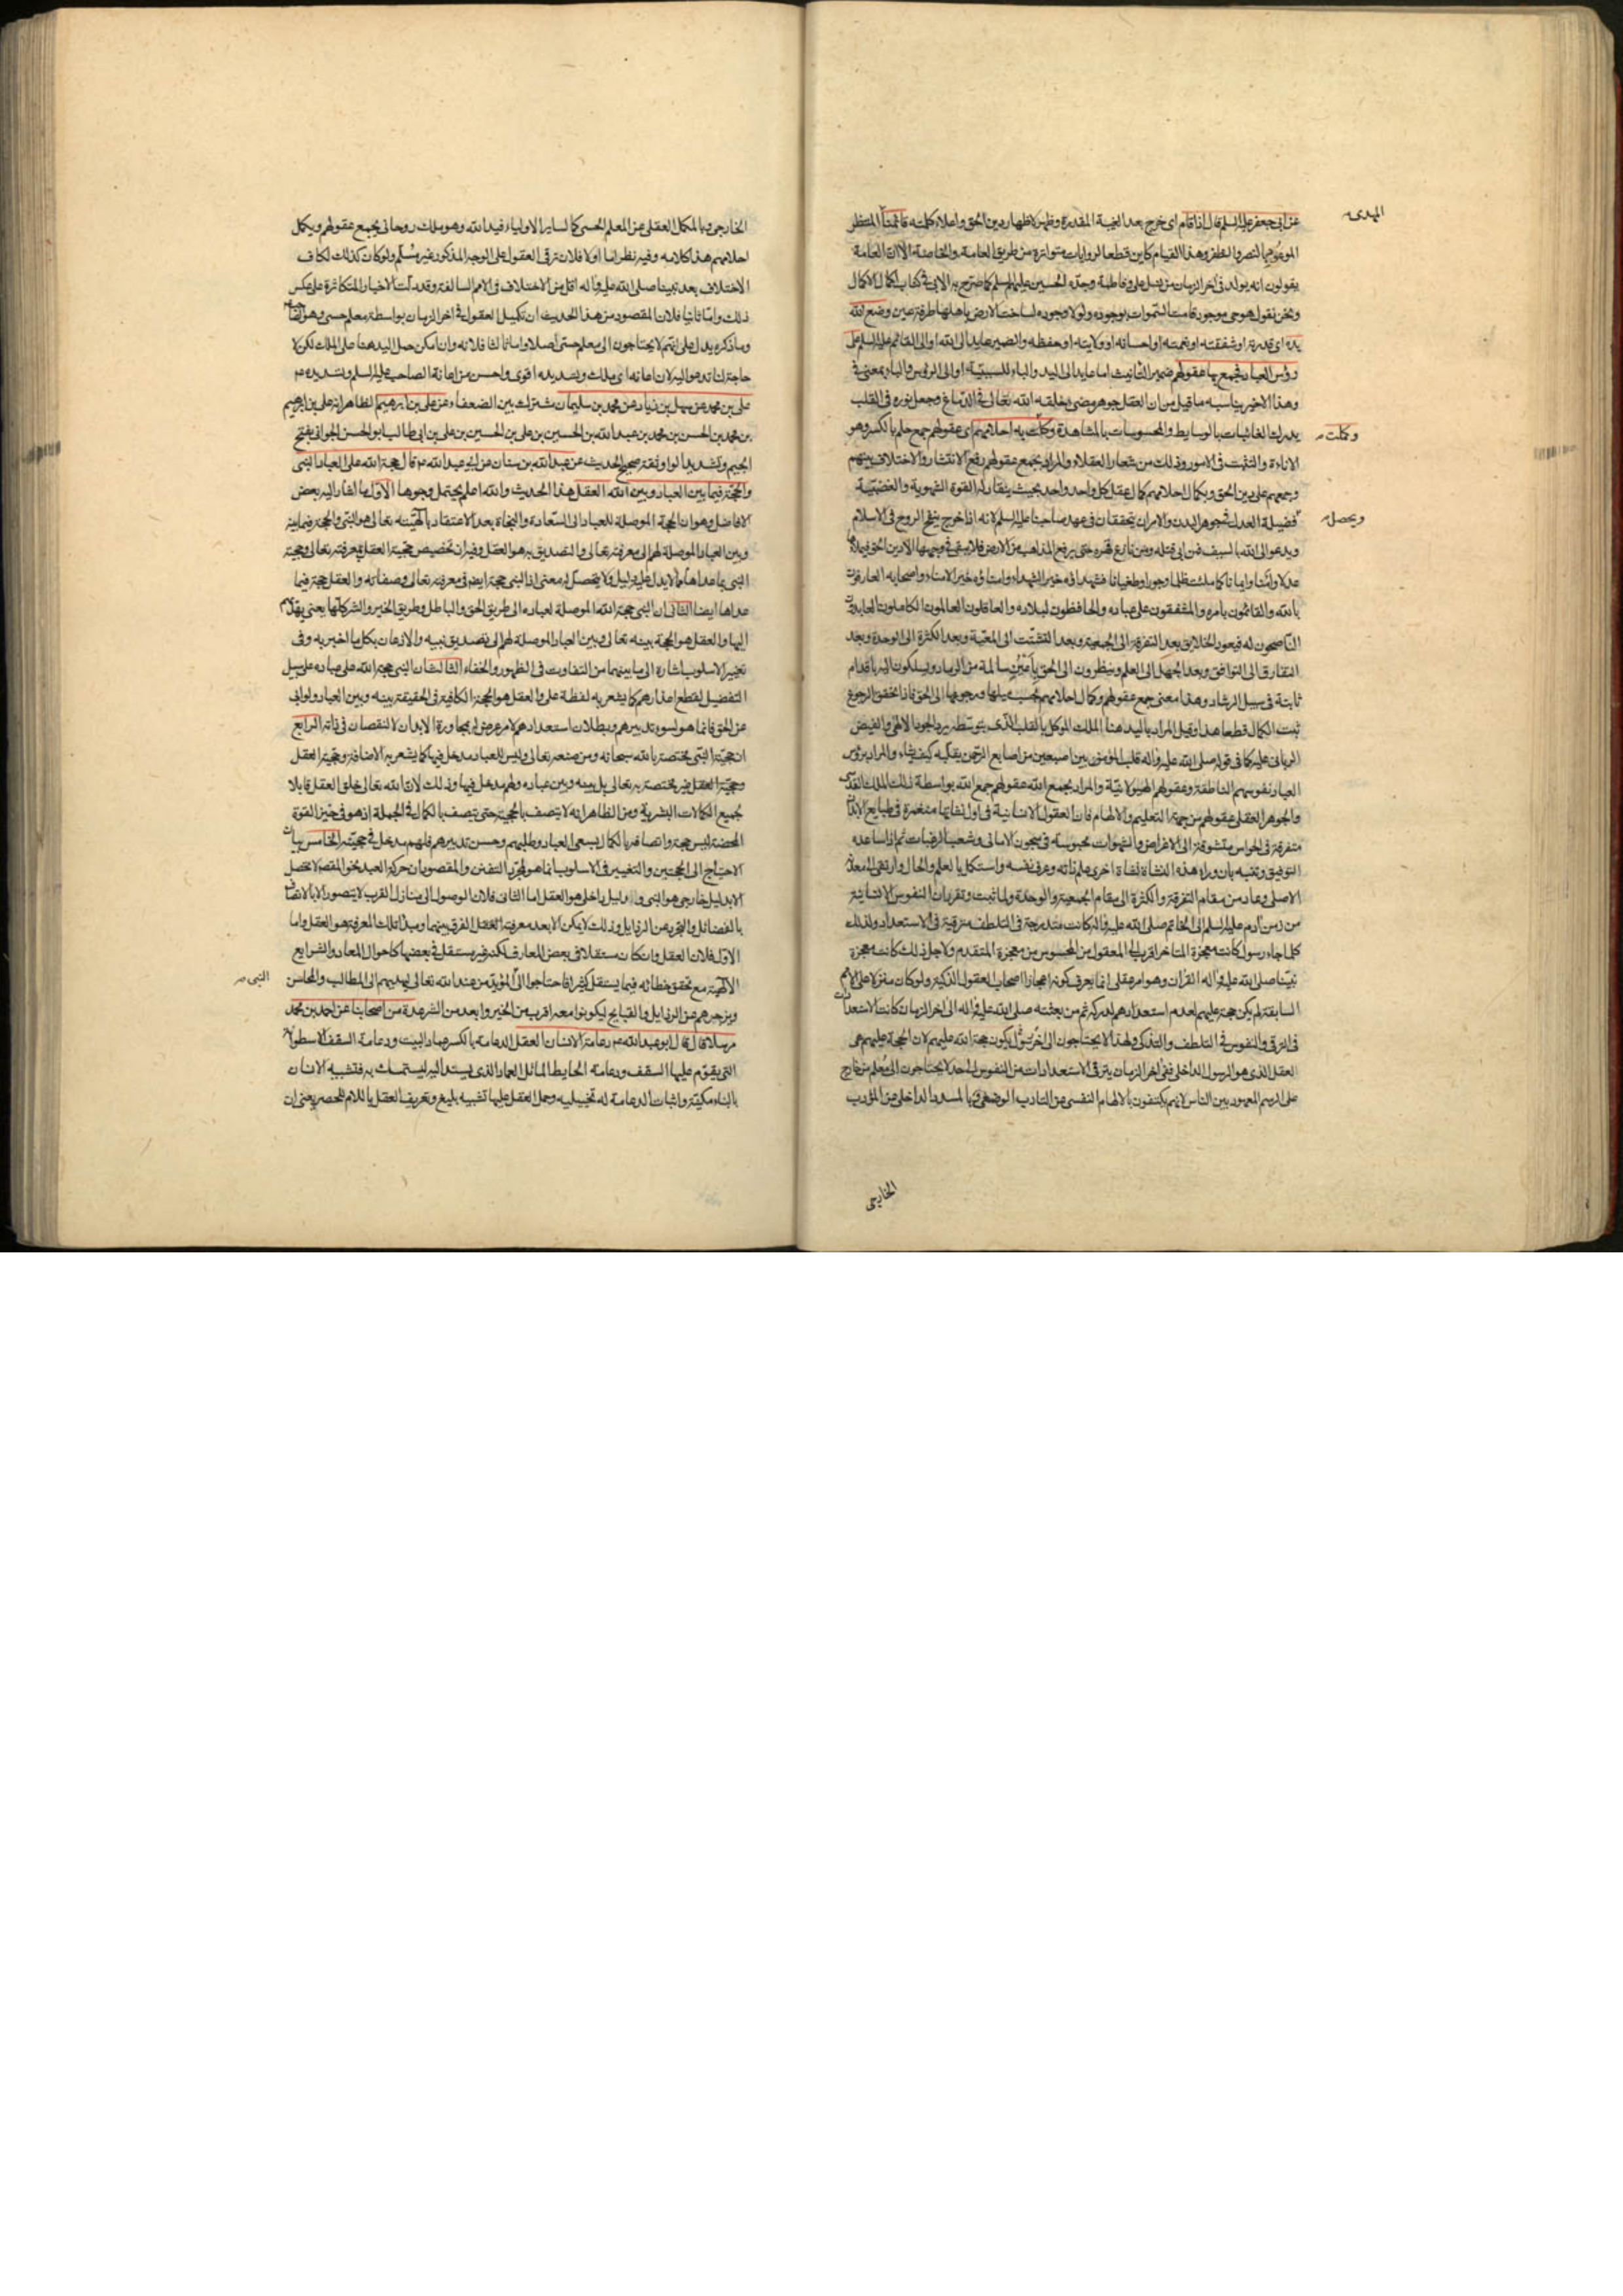 عن ابی جعفر علیه السلم قال اذا قام ای خرج بعد الغیبة المقدرة وظهر لاظهار دین الحق واعلاء کلمته قائمنا المنتظر
المهدی
الموعود بالنصر والظفر وهذا القیام کاین قطعا لروایات متواترة من طریق العامة والخاصة الا ان العامة
یقولون انه یولد فی اخر الزمان من نسل علی وفاطمة وجده الحسین علیهم السلم کما صرح به الابی فی کتاب اکمال الاکمال
ونحن نقول هو حی موجود قامت السموات بوجوده ولولا وجوده لساخت الارض باهلها طرفة عین وضع الله
یده ای قدرته او شفقته او نعمته او احسانه او ولایته او حفظه والضمیر عاید الی الله او الی القائم علیه السلم علی
رؤس العباد فجمع بها عقولهم ضمیر التانیث اما عاید الی الید والباء للسببیة او الی الرؤس والباء بمعنی فی
وهذا الاخیر یناسبه ما قیل من ان العقل جوهر مضی خلقه الله تعالی فی الدماغ وجعل نوره فی القلب
یدرك الغائبات بالوسایط والمحسوسات بالمشاهدة وکملت به احلامهم ای عقولهم جمع حلم بالکسر وهو
وکملت
الاناءة والتثبت فی الامور وذلك من شعار العقلاء والمراد بجمع عقولهم رفع الانتشار والاختلاف بینهم
وجمعهم علی دین الحق وبکمال احلامهم کمال عقل کل واحد واحد بحیث ینقاد له القوة الشهویة والغضبیة
فضیلة العدل فی جوهر البدن والامران یتحققان فی عهد صاحبنا علیه السلم لانه اذا خرج ینفخ الروح فی الاسلام
ویحصل
ویدعو الی الله بالسیف فمن ابی قتله ومن نازع قهره حتی یرفع المذاهب من الارض فلا یبقی فی وجهها الا دین الحق فیملاءها
عدلا وامنا وایمانا کما ملئت ظلما وجورا وطغیانا فشهداؤه خیر الشهداء وامناؤه خیر الامناء واصحابه العارفون
بالله والقائمون بامره والمشفقون علی عباده والحافظون لبلاده والعاقلون العالمون الکاملون العابدون
الناصحون له فیعود الخلایق بعد التفرقة الی الجمعیة وبعد التشتت الی المعیة وبعد الکثرة الی الوحدة وبعد
التفارق الی التوافق وبعد الجهل الی العلم وینظرون الی الحق باعین سالمة من الرمد ویسلکون الیه باقدام
ثابتة فی سبیل الرشاد وهذا معنی جمع عقولهم وکمال احلامهم بحسب میلها ورجوعها الی الحق فاذا تحقق الرجوع
ثبت الکمال قطعا هذا وقیل المراد بالید هنا الملك الموکل بالقلب الذی بتوسطه یرد الجود الالهی والفیض
الربانی علیه کما فی قوله صلی الله علیه واله قلب المؤمن بین اصبعین من اصابع الرحمن یقلبه کیف یشاء والمراد برؤس
العباد نفوسهم الناطقة وعقولهم الهیولانیة والمراد بجمع الله عقولهم جمع الله بواسطة ذلك الملك القدسی
والجوهر العقلی عقولهم من جهة التعلیم والالهام فان العقول الانسانیة فی اول نشاتها منغمرة فی طبایع الابدان
متفرقة فی الحواس متشوقة الی الاغراض والشهوات محبوسة فی سجون الامانی وشعب الرغبات ثم اذا ساعده
التوفیق وتنبه بان وراء هذه النشاة نشاة اخری علم ذاته وعرف نفسه واستکمل بالعلم والحال وارتقی الی معدنه
الاصلی وعاد من مقام التفرقة والکثرة الی مقام الجمعیة والوحدة ولما ثبت وتقرر ان النفوس الانسانیة
من زمن ادم علیه السلم الی الخاتم صلی الله علیه واله کانت متدرجة فی التلطف مترقیة فی الاستعداد ولذلك
کلما جاء رسول کانت معجزة المتاخر اقرب الی المعقول من المحسوس من معجزة المتقدم ولاجل ذلك کانت معجزة
نبینا صلی الله علیه واله القران وهو امر عقلی انما یعرف کونه اعجازا اصحاب العقول الذکیة ولو کان منزلا علی الامم
السابقة لم یکن حجة علیهم لعدم استعدادهم لدرکه ثم من بعثته صلی الله علیه واله الی اخر الزمان کانت الاستعدادات
فی الترقی والنفوس فی التلطف والتذکی ولهذا لا یحتاجون الی اخر رسول یکون حجة الله علیهم لان الحجة علیهم هی
العقل الذی هو الرسول الداخلی ففی اخر الزمان یترقی الاستعدادات من النفوس الی حد لا یحتاجون الی معلم من خارج
علی الرسم المعهود بین الناس لانهم یکتفون بالالهام النفسی عن التادب الوضعی وبالمسدد الداخلی عن المؤدب
الخارجی
الخارجی وبالمکمل العقلی عن المعلم الحسی کما لسایر الاولیاء فید الله وهو ملك روحانی یجمع عقولهم ویکمل
احلامهم هذا کلامه وفیه نظر اما اولا فلان ترقی العقول علی الوجه المذکور غیر مسلم ولو کان کذلك لکان
الاختلاف بعد نبینا صلی الله علیه واله اقل من الاختلاف فی الامم السالفة وقد دلت الاخبار المتکاثرة علی عکس
ذلك واما ثانیا فلان المقصود من هذا الحدیث ان تکمیل العقول فی اخر الزمان بواسطة معلم حسی وهو القائم
وما ذکره یدل علی انهم لا یحتاجون الی معلم حسی اصلا واما ثالثا فلانه وان امکن حمل الید هنا علی الملك لکن لا
حاجة لنا تدعو الیه لان اعانه ای ملك وتسدیده اقوی واحسن من اعانة الصاحب علیه السلم وتسدیده
علی بن محمد عن سهل بن زیاد عن محمد بن سلیمان مشترك بین الضعفاء عن علی بن ابرهیم الظاهر انه علی بن ابرهیم
بن محمد بن الحسن بن محمد بن عبید الله بن الحسین بن علی بن الحسین بن علی بن ابی طالب ابو الحسن الجوانی بفتح
الجیم وتشدید الواو ثقة صحیح الحدیث عن عبد الله بن سنان عن ابی عبد الله ع قال حجة الله علی العباد النبی
والحجة فیما بین العباد وبین الله العقل هذا الحدیث والله اعلم یحتمل وجوها الاول ما اشار الیه بعض
الافاضل وهو ان الحجة الموصلة للعباد الی السعادة والنجاة بعد الاعتقاد بالهیته تعالی هو النبی والحجة فیما بینه
وبین العباد الموصلة لهم الی معرفته تعالی والتصدیق به هو العقل وفیه ان تخصیص حجیة العقل بمعرفته تعالی وحجیة
النبی بما عداها مما لا یدل علیه دلیل ولا یتحصل له معنی اذ النبی حجة ایضا فی معرفته تعالی وصفاته والعقل حجة فیما
عداها ایضا الثانی ان النبی حجة الله الموصلة لعباده الی طریق الحق والباطل وطریق الخیر والشر کلها یعنی یهدیهم
الیها والعقل هو الحجة بینه تعالی وبین العباد الموصلة لهم الی تصدیق نبیه والاذعان بکل ما اخبر به وفی
تغییر الاسلوب اشارة الی ما بینهما من التفاوت فی الظهور والخفاء الثالث ان النبی حجة الله علی عباده علی سبیل
التفضیل لقطع اعذارهم کما یشعر به لفظة علی والعقل هو الحجة الکافیة فی الحقیقة بینه وبین العباد ولو ابی
عن الحق فانما هو لسوء تدبیرهم وبطلان استعدادهم لامر عرض له بمجاورة الابدان لا لنقصان فی ذاته الرابع
ان حجیة النبی مختصة بالله سبحانه ومن صنعه تعالی ولیس للعباد مدخل فیها کما یشعر به الاضافة وحجیة العقل
وحجیة العقل غیر مختصة به تعالی بل بینه وبین عباده ولهم مدخل فیها وذلك لان الله تعالی خلق العقل قابلا
لجمیع الکمالات البشریة ومن الظاهر انه لا یتصف بالحجیة حتی یتصف بالکمال فی الجملة اذ هو فی حیز القوة
المحضة لیس حجة واتصافه بالکمال بسعی العباد وطلبهم وحسن تدبیرهم فلهم مدخل فی حجیته الخامس بیان
الاحتیاج الی الحجتین والتغییر فی الاسلوب انما هو لمجرد التفنن والمقصود ان حرکة العبد نحو المقصد لا تحصل
الا بدلیل خارجی هو النبی ودلیل داخلی هو العقل اما الثانی فلان الوصول الی منازل القرب لا یتصور الا بالاتصاف
بالفضائل والتجرد من الرذایل وذلك لا یمکن الا بعد معرفة الفرق بینهما ومبدا تلك المعرفة هو العقل واما
الاول فلان العقل وان کان مستقلا فی بعض المعارف لکنه غیر مستقل فی بعضها کاحوال المعاد والشرایع
الالهیة مع تحقق خطائه فیما یستقل کثیرا فاحتاجوا الی المؤید من عند الله تعالی لیهدیهم الی المطالب والمحاسن
النبی
ویزجرهم عن الرذایل والقبایح لیکونوا معه اقرب من الخیر وابعد من الشر عدة من اصحابنا عن احمد بن محمد
مرسلا قال قال ابو عبد الله ع دعامة الانسان العقل الدعامة بالکسر عماد البیت ودعامة السقف الاسطوانة
التی یقوم علیها السقف ودعامة الحایط المائل العماد الذی یستند الیه لیستمسك به فتشبیه الانسان
بالبناء مکنیة واثبات الدعامة له تخییلیة وحمل العقل علیها تشبیه بلیغ وتعریف العقل باللام للحصر یعنی ان